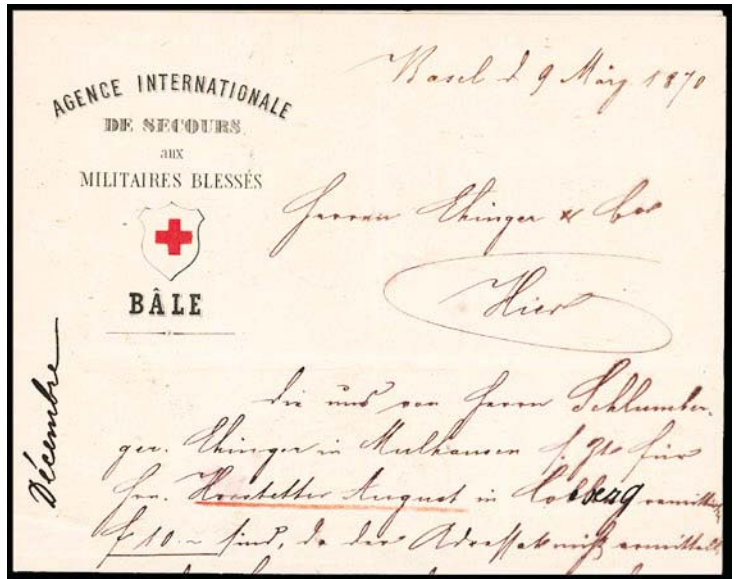 AGENCE INTERNATIONALE
DE SECOURS
aux
MILITAIRES BLESSÉS
BÂLE
Basel d 9 März 1870
Herren Ehinger & Co
Hier
Décembre
Die uns von Herrn Schlumber-
ger. Ehinger in Mulhausen s. Zt. für
Hrn. Hofstetter August in Colberg remittirten
f 10.~ sind, da der Adressat nicht ermittelt